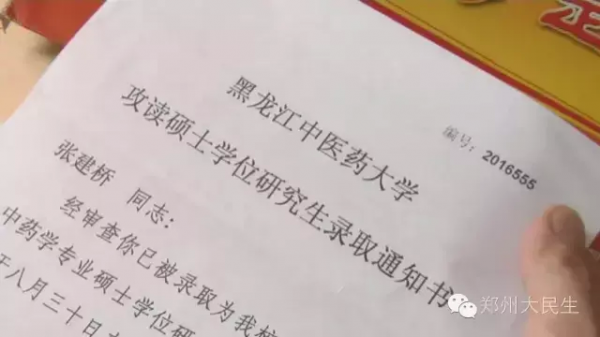 编号：2016555
黑龙江中医药大学
攻读硕士学位研究生录取通知书
张建桥 同志：
经审查你已被录取为我校
中药学专业硕士学位研
于八月三十日
郑州大民生